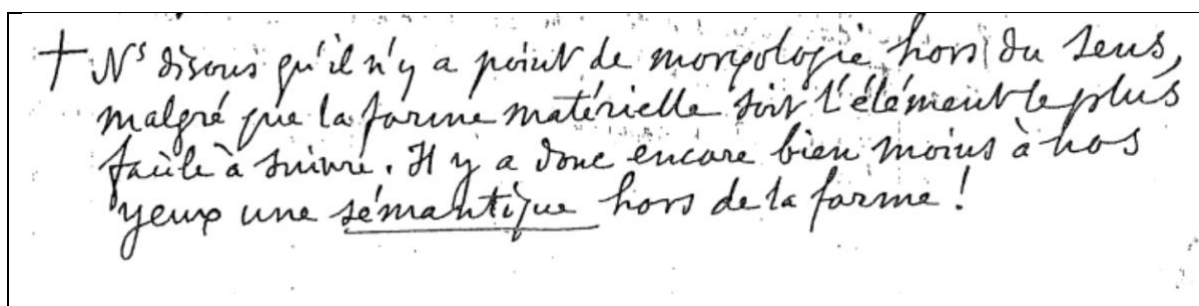 + Ns disons qu'il n'y a point de morpologie hors du sens,
malgré que la forme matérielle soit l'élément le plus
facile à suivre. Il y a donc encore bien moins à nos
yeux une sémantique hors de la forme !